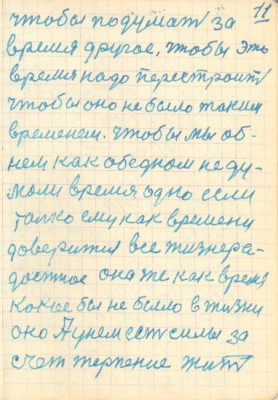 11
чтобы подумат за
время другое, чтобы это
время надо перестроит
чтобы оно не было таким
временем. чтобы мы об-
нем как обедном не ду-
мали время одно если
толко ему как времени
доверится все жизнера-
достное она же как время
какое бы не было в жизни
оно А у нем ест силы за
счет терпение жит